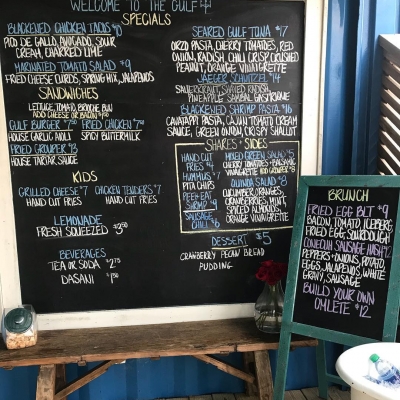 WELCOME TO THE GULF
SPECIALS
BLACKENED CHICKEN TACOS $8
PICO DE GALLO, AVOCADO, SOUR
CREAM, CHARRED LIME
MARINATED TOMATO SALAD $9
FRIED CHEESE CURDS, SPRING MIX, JALAPENOS
SANDWICHES
LETTUCE, TOMATO, BRIOCHE BUN
ADD CHEESE OR BACON
GULF BURGER $7.50
HOUSE GARLIC AIOLI
FRIED CHICKEN $7.50
SPICY BUTTERMILK
FRIED GROUPER $13
HOUSE TARTAR SAUCE
KIDS
GRILLED CHEESE $7
HAND CUT FRIES
CHICKEN TENDERS $7
HAND CUT FRIES
LEMONADE
FRESH SQUEEZED $3.50
BEVERAGES
TEA OR SODA $2.75
DASANI $1.50
SEARED GULF TUNA $17
ORZO PASTA, CHERRY TOMATOES, RED
ONION, RADISH, CHILI CRISP, CRUSHED
PEANUT, ORANGE VINAIGRETTE
JAEGER SCHNITZEL $14
SAUERKRAUT, RADISH,
PINEAPPLE SAMBAL GASTRIQUE
BLACKENED SHRIMP PASTA $16
CAVATAPPI PASTA, CAJUN TOMATO CREAM
SAUCE, GREEN ONION, CRISPY SHALLOT
SHARES + SIDES
HAND CUT
FRIES $4
HUMMUS $7
PITA CHIPS
PEEL + EAT
SHRIMP $9
SAUSAGE
CHILI $6
MIXED GREEN SALAD $5
CHERRY TOMATOES + BALSAMIC
VINAIGRETTE ADD GROUPER $8
QUINOA SALAD $8
CUCUMBER, ORANGES,
CRANBERRIES, MINT,
SPICED ALMONDS,
ORANGE VINAIGRETTE
DESSERT $5
CRANBERRY PECAN BREAD
PUDDING
BRUNCH
FRIED EGG BLT $9
BACON, TOMATO, ICEBERG,
FRIED EGG, SOURDOUGH
CONECUH SAUSAGE HASH $12
PEPPERS + ONIONS, POTATO,
EGGS, JALAPENOS, WHITE
GRAVY, SAUSAGE
BUILD YOUR OWN
OMLETE $12